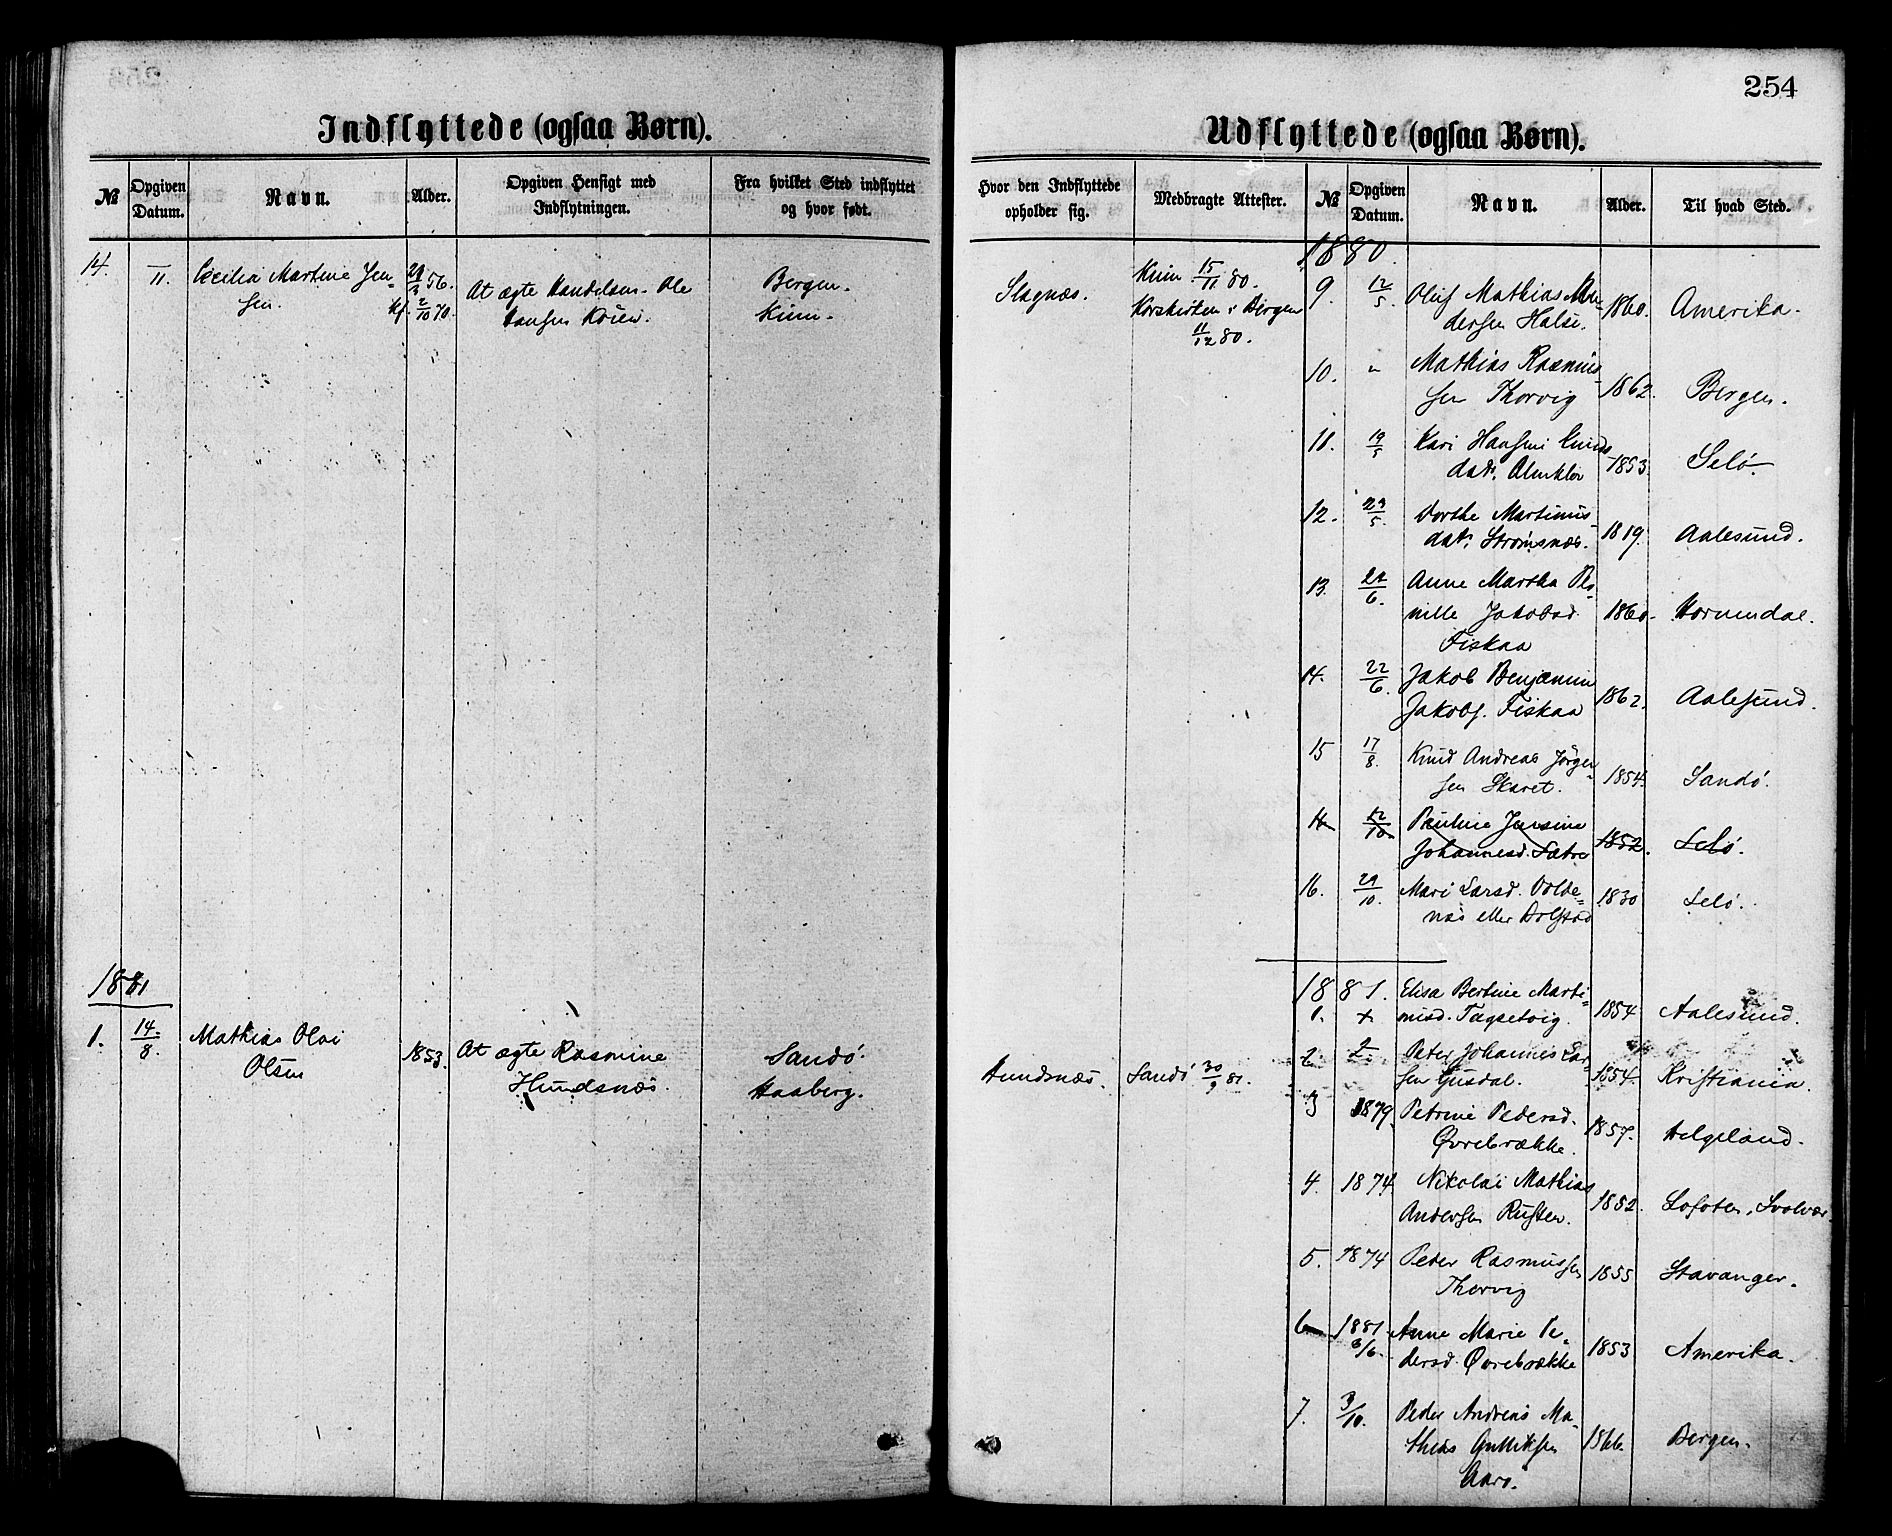 254
Indflyttede (ogsaa Børn).
№ Opgiven Datum. Navn. Alder. Opgiven Hensigt med Indflytningen. Fra hvilket Sted indflyttet og hvor født.
14. 11. Cecilia Martine Jen- 29/3 56. At ægte Handelsm. Ole Bergen.
sen. kf. 2/10 70. Hansen Kinn.
1881
1. 14/8. Mathias Olai 1853. At ægte Rasmine Sandö.
Olsen Hundsnæs. Haaberg.
Udflyttede (ogsaa Børn).
Hvor den Indflyttede opholder sig. Medbragte Attester. № Opgiven Datum. Navn. Alder. Til hvad Sted.
Slagnæs. Kinn 15/11 80.
Korskirken i Bergen
11/12 80.
Hundsnæs. Sandö 30/9 81.
1880.
9. 12/5. Oluf Mathias An-
dersen Halse. 1860. Amerika.
10. " Mathias Rasmus-
sen Thorvig 1862. Bergen.
11. 19/5 Kari Hansine Knuds-
dat. 1853. Selö.
12. 29/5. Dorthe Martinus-
dat. Strömsnæs. 1819. Aalesund.
13. 22/6. Anne Martha Per-
nille Jakobsd. 1860. Hornindal.
Fiskaa
14. 22/6. Jakob Benjamin
Jakobs. Fiskaa 1862. Aalesund.
15 17/8. Knud Andreas Jörgen-
sen Skaret. 1854. Sandö.
12/10. Pauline Jensine
Johannesd. Sætre 1852. Selö.
16. 29/10. Mari Larsd. Volde-
næs eller Dolstad 1830 Selö.
1881.
1. Elisa Bertine Marti-
nusd. Tagsetvig. 1854 Aalesund.
2. Peter Johannes Lar-
sen Gusdal. 1854. Kristiania.
3 1879. Petrine Pedersd.
Øvrebrække. 1857. Helgeland.
4. 1874 Nikolai Mathias
Andersen Rusten. 1852. Lofoten, Svolvær.
5. 1874 Peder Rasmussen
Thorvig 1855 Stavanger.
6 1881 3/6. Anne Marie Pe-
dersd. Øvrebrække 1853 Amerika.
7. 3/10. Peder Andreas Ma-
thias Gulliksen 1866. Bergen.
Aarö.